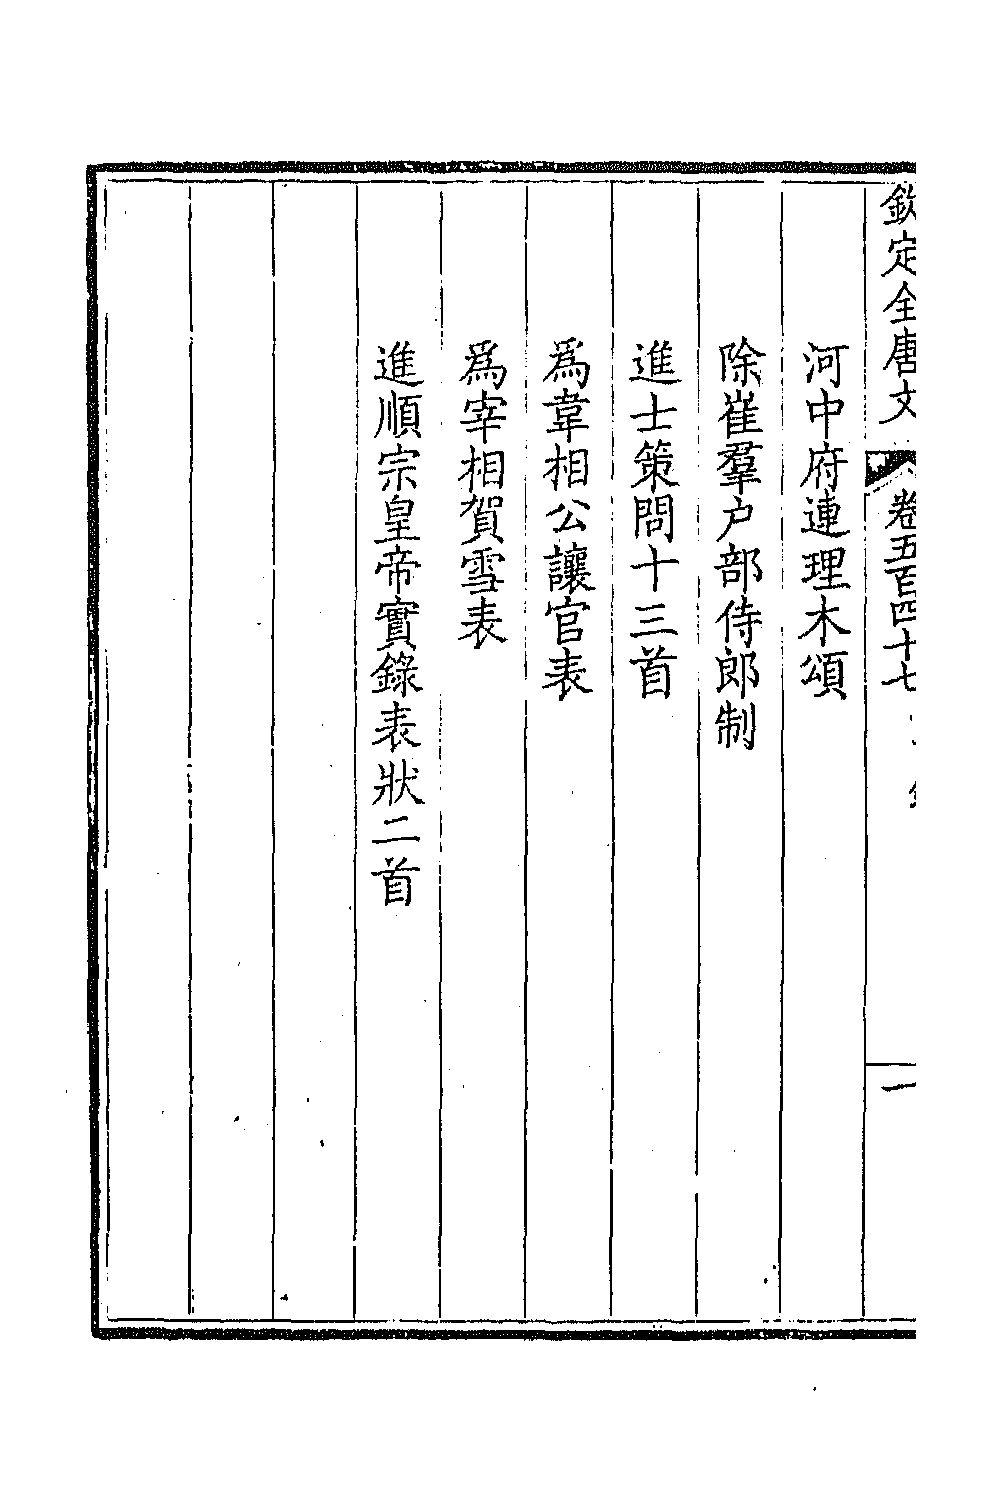 欽定全唐文 卷五百四十七
一
河中府連理木頌
除崔羣户部侍郎制
進士策問十三首
爲韋相公讓官表
爲宰相賀雪表
進順宗皇帝實錄表狀二首